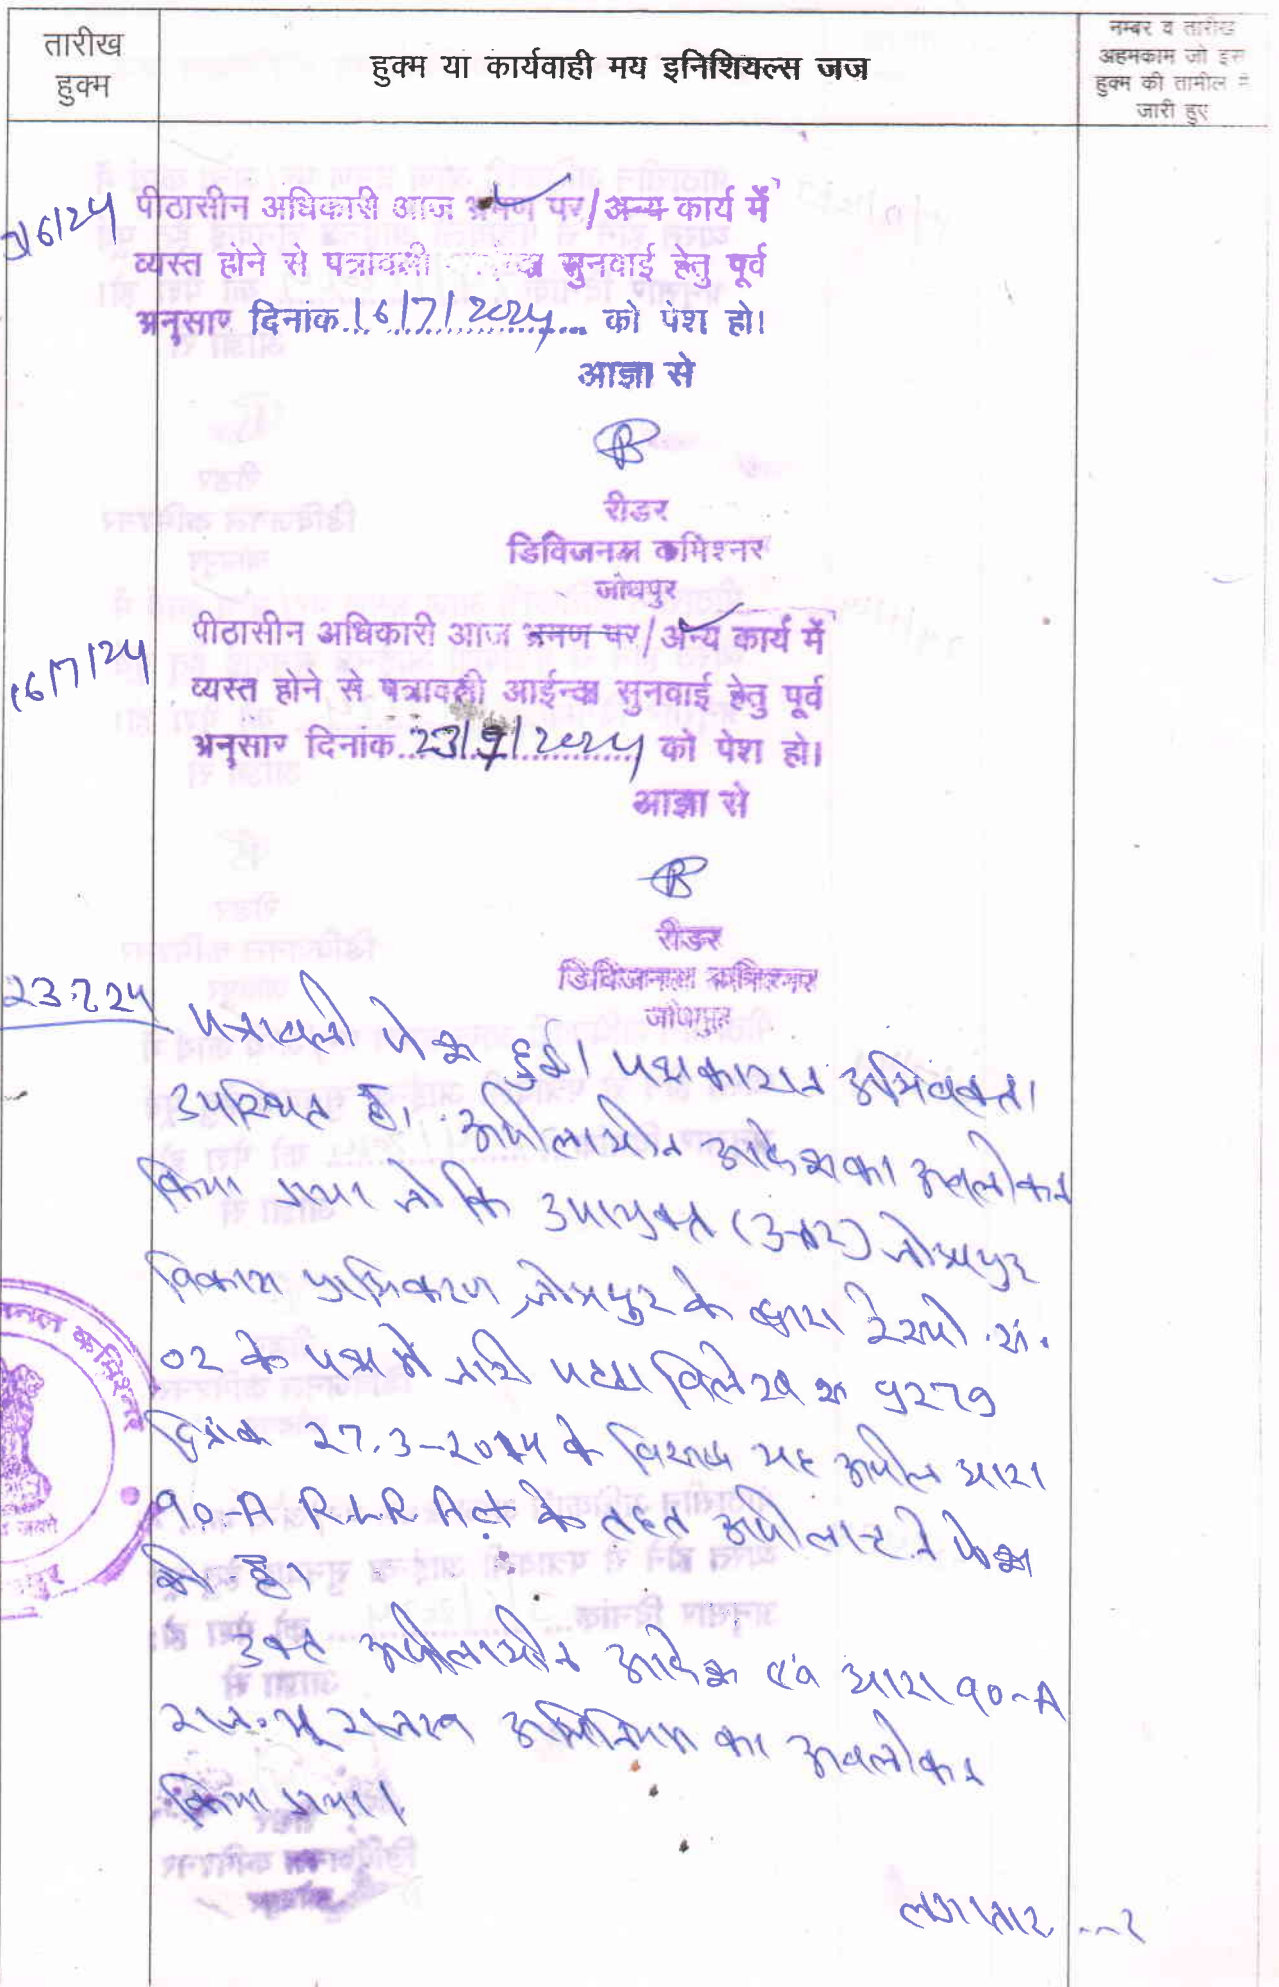 तारीख
हुक्म
हुक्म या कार्यवाही मय इनिशियल्स जज
नम्बर व तारीख
अहमकाम जो इस
हुक्म की तामील में
जारी हुए
6/24
पीठासीन अधिकारी आज भ्रमण पर/अन्य कार्य में
व्यस्त होने से पत्रावली सुनवाई हेतु पूर्व
अनुसार दिनांक 16/7/2024 को पेश हो।
आज्ञा से
रीडर
डिविजनल कमिश्नर
जोधपुर
16/7/24
पीठासीन अधिकारी आज भ्रमण पर/अन्य कार्य में
व्यस्त होने से पत्रावली आईन्दा सुनवाई हेतु पूर्व
अनुसार दिनांक 23/7/2024 को पेश हो।
आज्ञा से
रीडर
डिविजनल कमिश्नर
जोधपुर
23.7.24
पत्रावली पेश हुई। पक्षकारान अभिवक्ता
उपस्थित है। अपीलाधीन आदेश का अवलोकन
किया गया जो कि उपायुक्त (उत्तर) जोधपुर
विकास प्राधिकरण जोधपुर के द्वारा रेस्पो. सं.
02 के पक्ष में जारी पट्टा विलेख
दिनांक 27.3-2014 के विरूद्ध यह अपील धारा
90-A R.L.R Act के तहत अपीलान्ट ने पेश
की है।
उक्त अपीलाधीन आदेश एवं धारा 90-A
राज. भू राजस्व अधिनियम का अवलोकन
किया गया।
लगातार ---2